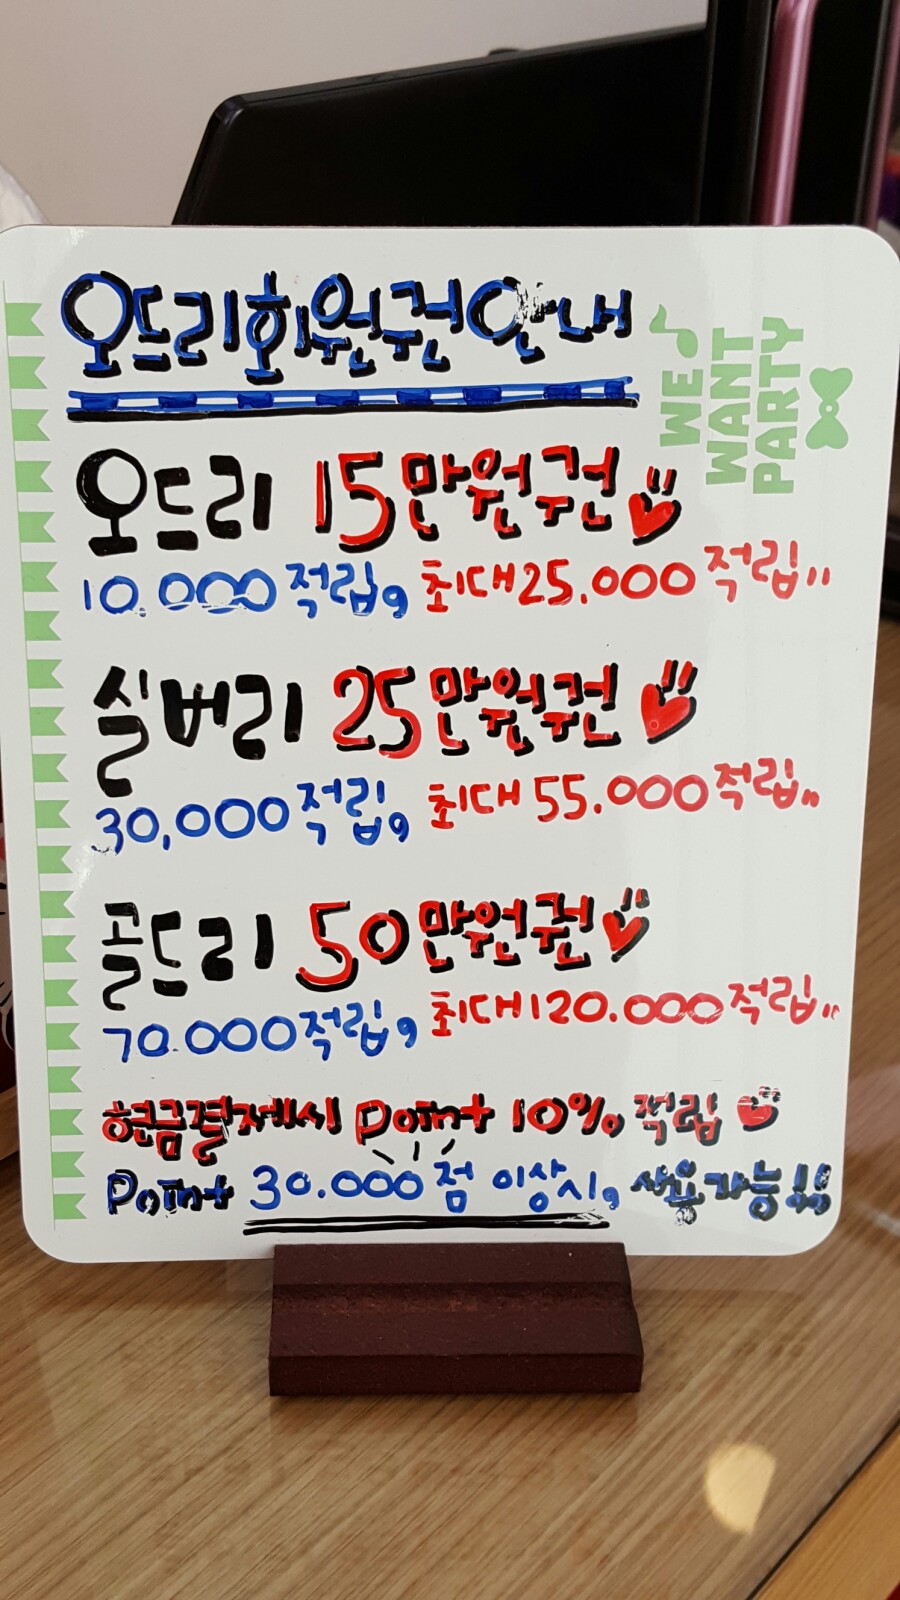 오드리회원권안내
WE
WANT
PARTY
오드리 15만원권
10.000적립, 최대25.000적립"
실버리 25만원권
30,000적립, 최대55.000적립"
골드리 50만원권
70.000적립, 최대120.000적립"
현금결제시 Point 10% 적립
Point 30.000점 이상시, 사용가능!!